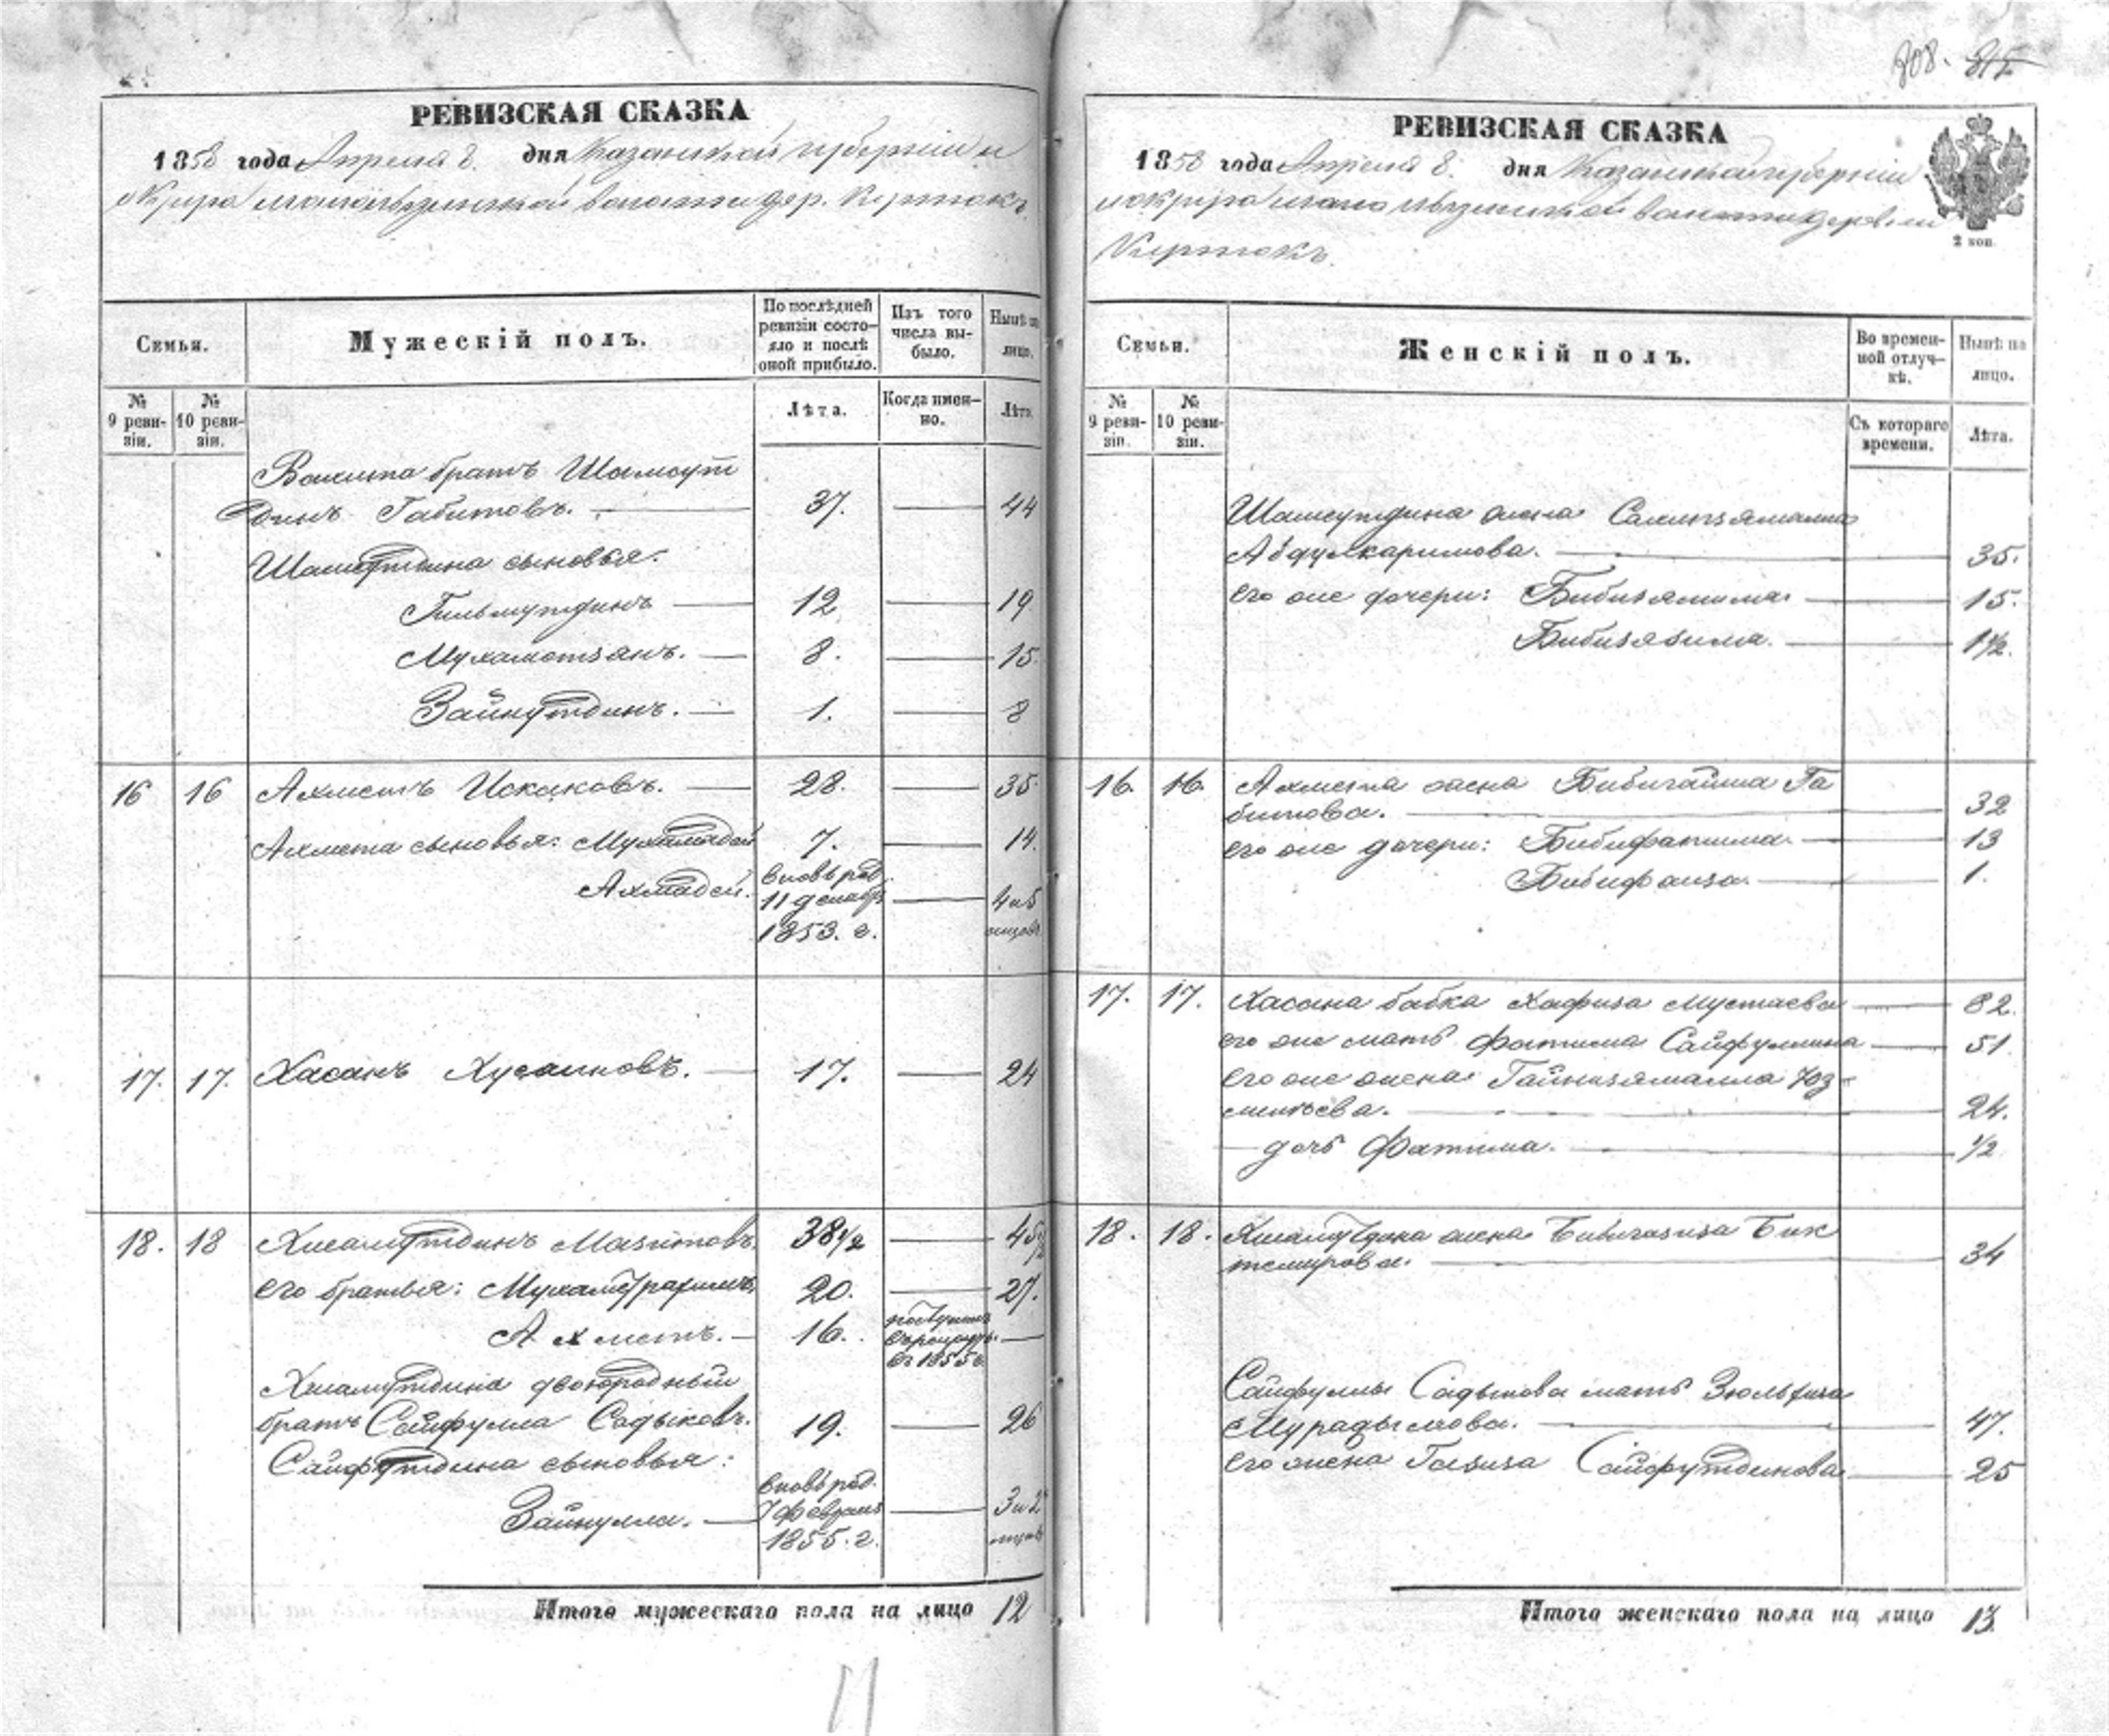 808. 815
РЕВИЗСКАЯ СКАЗКА
1858 года Апреля 8. дня Казанской губернии и
округа волости дер. Киртокъ
Семьи.
Мужескій полъ.
По послѣдней ревизіи состо-
яло и послѣ оной прибыло.
Изъ того числа вы-
было.
Нынѣ на лицо.
№ 9 реви-
зіи.
№ 10 реви-
зіи.
Лѣта.
Когда имен-
но.
Лѣта.
брать Шамсут
динъ Габитовъ. 37. 44
Шамсутдина сыновья:
Гильмутдинъ 12 19
Мухаметзянъ. 8. 15.
Зайнутдинъ. 1. 8
16 16 Ахметъ Искаковъ. 28. 35.
Ахмета сыновья: Мухаметдей 7. 14.
Ахмадей. вновь род. 11 декабр 1853. г. 4 и 5 мѣсяцовъ
17. 17. Хасанъ Хусаиновъ. 17. 24
18. 18 Хисамутдинъ Мазитовъ. 38 1/2 45 1/2
его братья: Мухаметрахимъ. 20. 27.
Ахметъ. 16. поступилъ въ рекруты въ 1855 г.
Хисамутдина двоюродный
братъ Сайфулла Садыковъ. 19. 26
Сайфутдина сыновья:
Зайнулла. вновь род. 7 февраля 1855. г. 3 и 2 мѣсяц
Итого мужескаго пола на лицо 12
РЕВИЗСКАЯ СКАЗКА
1858 года Апреля 8. дня Казанской губерніи
и округа волости деревни
Киртокъ.
2 коп.
Семьи.
Женскій полъ.
Во времен-
ной отлуч-
кѣ.
Нынѣ на лицо.
№ 9 реви-
зіи.
№ 10 реви-
зіи.
Съ котораго времени.
Лѣта.
Шамсутдина жена
Абдулкаримова. 35.
его же дочери: Бибизямима 15.
Бибизязима. 1 1/2.
16. 16. Ахмета жена Бибигайша Га
битова. 32
его же дочери: Бибифатима 13
Бибифаиза. 1.
17. 17. Хасана бабка Хафиза Мустаева 82.
его же мать Фатима Сайфуллина 51.
его же жена Гайнизямалла Юз-
микѣева. 24.
дочь Фатима. 1/2
18. 18. Хисамутдина жена Бибигазиза Бик
темирова. 34
Сайфуллы Садыкова мать
Мурадымова. 47.
его жена Газиза Сайфутдинова 25
Итого женскаго пола на лицо 13.